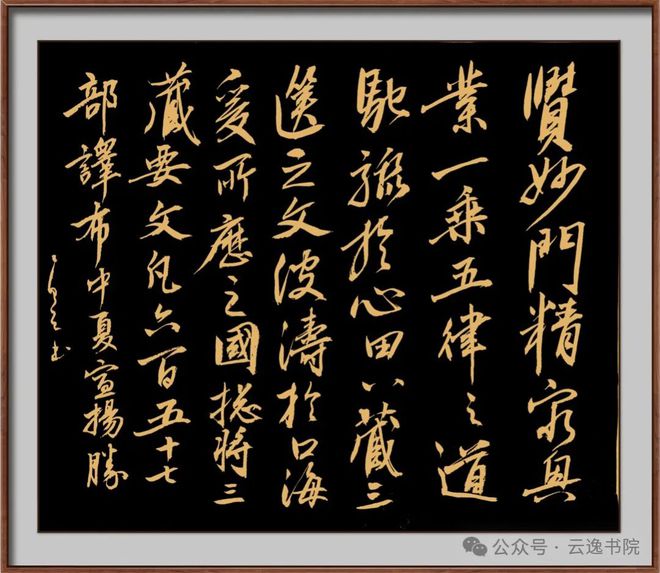 賾妙門精窮奧
業一乘五律之道
馳驟於心田八藏三
篋之文波濤於口海
爰所歷之國揔將三
藏要文凡六百五十七
部譯布中夏宣揚勝
公众号 · 云逸书院